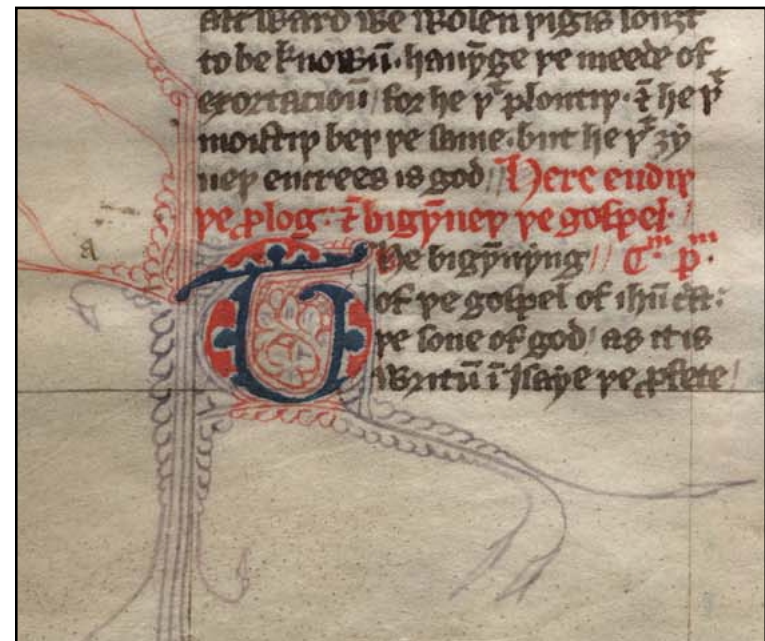 we wolen þigis
to be knowū· hauȳge þe meede of
exortacioū / for he þᵗ plontiþ · ⁊ he þᵗ
moistiþ beþ þe same · but he þᵗ ȝy
ueþ encrees is god // Here endiþ
þe ꝓlog · ⁊ bigȳneþ þe gospel · /
a
The bigȳnyng // Cᵐ pᵐ·
of þe gospel of ihū crist:
þe sone of god / as it is
writū ī Isaye þe ꝓfete /